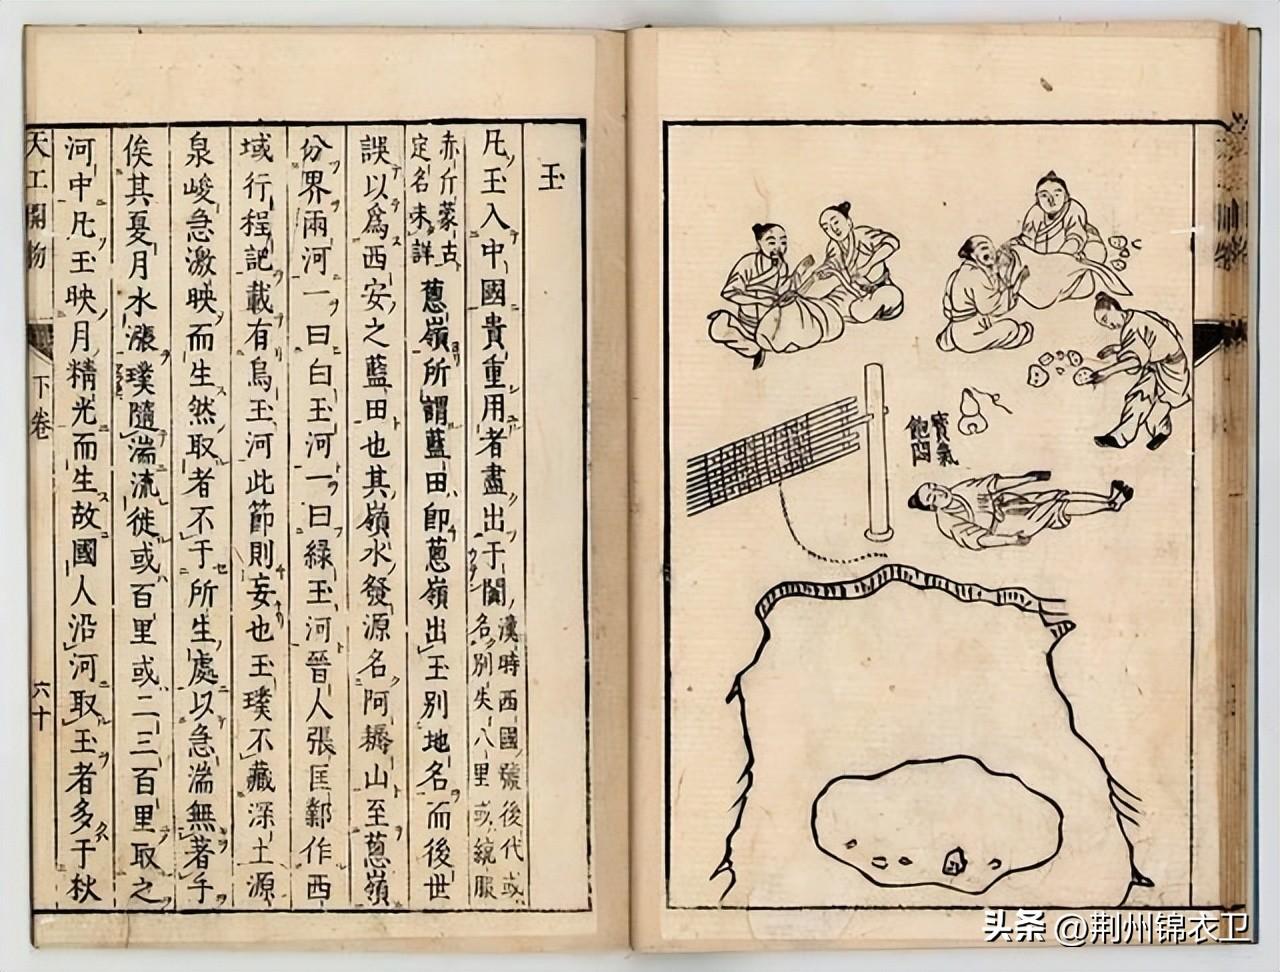 寳氣
飽悶
玉
凡玉入中國貴重用者盡出于闐漢時西國號後代或
名別失八里或統服
赤斤蒙古
定名未詳
蔥嶺所謂藍田即蔥嶺出玉別地名而後世
誤以爲西安之藍田也其嶺水發源名阿耨山至蔥嶺
分界兩河一曰白玉河一曰綠玉河晉人張匡鄴作西
域行程記載有烏玉河此節則妄也玉璞不藏深土源
泉峻急激映而生然取者不于所生處以急湍無著手
俟其夏月水漲璞隨湍流徙或百里或二三百里取之
河中凡玉映月精光而生故國人沿河取玉者多于秋
天工開物
下卷
六十
头条 @荆州锦衣卫